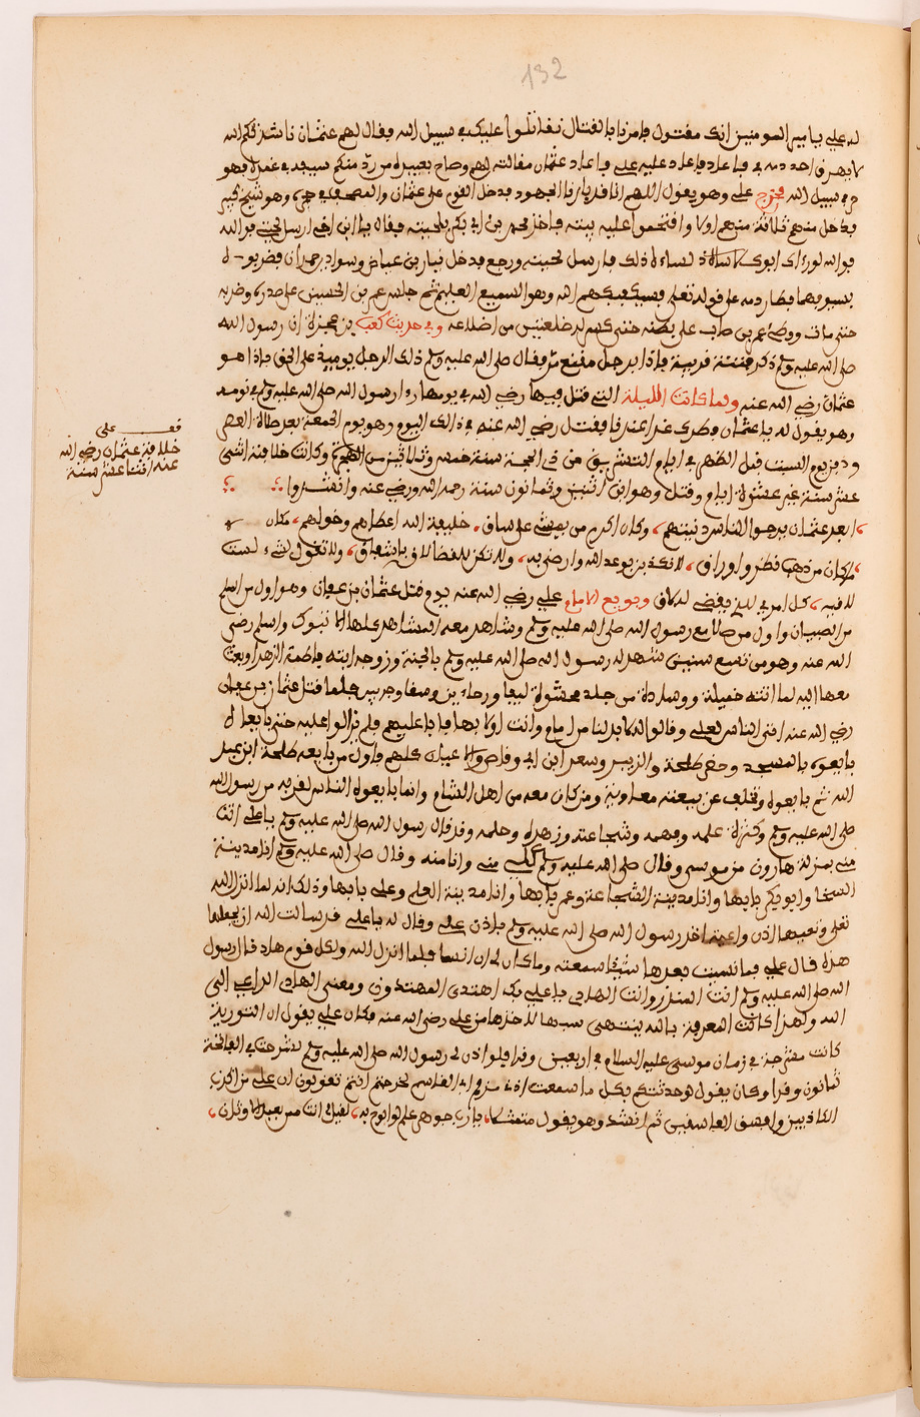 132
له علي يا امير المومنين انك مقتول فامرنا بالقتال نقاتلوا عليك في سبيل الله فقال لهم عثمان ناشدتكم الله
لا يهرق احد دمه في فاعاد فاعاد عليه علي فاعاد عثمان مقالته لهم وصاح بعبيده من رد منكم سيفه في غمده فهو
حر في سبيل الله فخرج علي وهو يقول اللهم انا قد بذلنا المجهود فدخل القوم على عثمان والمصحف في حجره وهو شيخ كبير
فدخل منهم ثلاثة منهم اولا واقتحموا عليه بيته فاخذ محمد بن ابي بكر بلحيته فقال يا ابن اخي ارسل لحيتي فوالله
فوالله لو رءاك ابوك لساءه ذلك فارسل لحيته ورجع فدخل نيار بن عياض وسودان بن حمران فضربوه
بسيوفهما فطار دمه على قوله تعلى فسيكفيكهم الله وهو السميع العليم ثم جلس عمر بن الحسين على صدره وضربه
حتى مات ووطئ عمير بن ضابئ على بطنه حتى كسر له ضلعين من اضلاعه وفي حديث كعب بن عجرة ان رسول الله
صلى الله عليه وسلم ذكر فتنة قريبة فاذا برجل مقنع مر فقال صلى الله عليه وسلم ذلك الرجل يومئذ على الحق فاذا هو
عثمان رضي الله عنه ولما كانت الليلة التي قتل فيها رضي الله في يومها رءا رسول الله صلى الله عليه وسلم في نومه
وهو يقول له يا عثمان فطرك غدا عندنا فقتل رضي الله عنه في ذلك اليوم وهو يوم الجمعة بعد صلاة العصر
ودفن يوم السبت قبل الظهر في ايام التشريق من ذي الحجة سنة خمسة وثلاثين من الهجرة وكانت خلافته اثنى
عشر سنة غير عشرة ايام وقتل وهو ابن اثنين وثمانون سنة رحمه الله ورضي عنه وانشدوا
ابعد عثمان يرجوا الناس دنيتهم، وكان اكرم من يمشي على ساق، خليفة الله اعطاهم وخولهم، مكان
ما كان من ذهب فطر واوراق، لا تكذبن بوعد الله وارض به، ولا تكن للقضا لاف باشفاق، ولا تقول لشيء لست
لاقيه، كل امرئ للذي يقضى له لاق وبويع الامام علي رضي الله عنه يوم قتل عثمان بن عفان وهو اول من اسلم
من الصبيان واول من صلا مع رسول الله صلى الله عليه وسلم وشاهد معه المشاهد كلها الا تبوك واسلم رضي
الله عنه وهو من تسع سنين شهد له رسول الله صلى الله عليه وسلم بالجنة وزوجه ابنته فاطمة الزهرا وبعث
معها اليه لما اتته خميلة ووسادة من جلد محشوة ليفا ورحاءين وسقا وجرتين فلما قتل عثمان بن عفان
رضي الله عنه اتى الناس لعلي وقالوا له لا بد لنا من امام وانت اولا بها فابا عليهم فلم يزالوا عليه حتى بايعا له
بايعوه بالمسجد وحضر طلحة والزبير وسعد ابن ابي وقاص والاعيان كلهم فاول من بايعه طلحة ابن عبيد
الله ثم بايعوه وتخلف عن بيعته معاوية ومن كان معه من اهل الشام وانما بايعوه الناس لقربه من رسول الله
صلى الله عليه وسلم وكثرة علمه وفهمه وشجاعته وزهده وحلمه وقد قال رسول الله صلى الله عليه وسلم يا علي انت
مني بمنزلة هارون من موسى وقال صلى الله عليه وسلم علي مني وانا منه وقال صلى الله عليه وسلم انا مدينة
السخا وابو بكر بابها وانا مدينة الشجاعة وعمر بابها وانا مدينة العلم وعلي بابها وذلك انه لما انزل الله
تعلى وتعيها اذن واعية اخذ رسول الله صلى الله عليه وسلم باذن علي وقال له يا علي قد سالت الله ان يجعلها
هذه قال علي فما نسيت بعدها شيئا سمعته وما كان لي ان انسا فلما انزل الله ولكل قوم هاد قال رسول
الله صلى الله عليه وسلم انت المنذر وانت الهادي يا علي بك اهتدى المهتدون ومعنى الهادي الداعي الى
الله ولهذا كانت المعرفة بالله ينتهي سندها لاخذها من علي رضي الله عنه فكان علي يقول ان التورية
كانت مشرحة في زمان موسى عليه السلام في اربعين وقرا فلو اذن لي رسول الله صلى الله عليه وسلم لشرحت في الفاتحة
ثمانون وقرا وكان يقول لو حدثتكم بكل ما سمعت اذناي من في ابا القاسم لخرجتم انتم تقولون ان علي من اكذب
الكاذبين وافسق الفاسقين ثم انشد وهو يقول متمثلا، يا رب جوهر علم لو ابوح به، لقيل لي انت ممن يعبد الاوثان،
قف على
خلافة عثمان رضي الله
عنه اثنتا عشر سنة